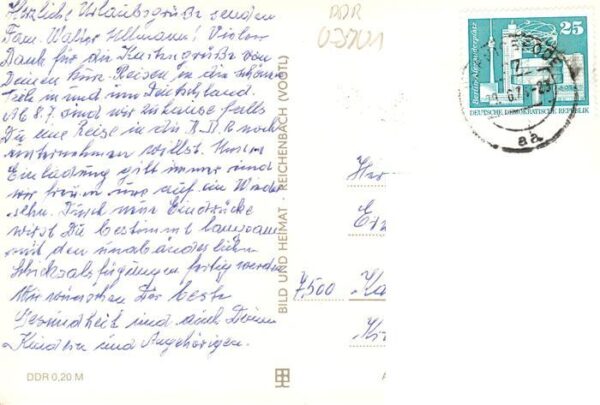 Herzliche Urlaubsgrüße senden
Fam. Walter Ullmann! Vielen
Dank für die Kartengrüße von
Deinen Reisen in die schön
in und um Deutschland.
Ab 8.7. sind wir zuhause falls
Du eine Reise in die noch
unternehmen willst. Unsere
Einladung gilt immer und
wir freuen uns auf ein Wieder
sehn. Durch neue Eindrücke
wirst Du bestimmt langsam
mit den unabänderlichen
Schicksalsfügungen fertig werden
Wir wünschen Dir beste
Gesundheit und auch Deinen
Kindern und Angehörigen.
DDR 0,20 M
BILD UND HEIMAT · REICHENBACH (VOGTL)
DDR
03701
25
Berlin-Alexanderplatz
DEUTSCHE DEMOKRATISCHE REPUBLIK
aa
7500 Ka